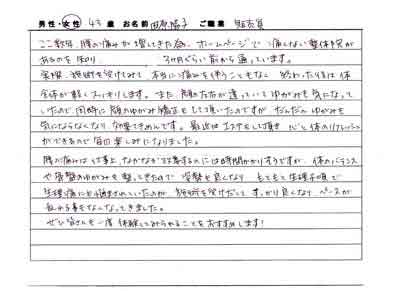 男性・女性 43 歳 お名前 田原陽子 ご職業 販売員
ここ数年、腰の痛みが増してきた為、ホームページで痛くない整体院が
あるのを知り、 3か月ぐらい前から通っています。
実際、施術を受けてみて、本当に痛みを伴うこともなく 終わった後は体
全体が軽くスッキリします。また、顔の左右が違っていてゆがみも気になって
いたので、同時に顔のゆがみ矯正もして頂いたのですが だんだんゆがみも
気にならなくなり、効果てきめんです。最近はエステもして頂き 心と体のリフレッシュ
ができるので毎回楽しみになりました。
腰の痛みは仕事上、なかなか改善するのには時間がかかりそうですが、体のバランス
や骨盤のゆがみも整ってきたので 姿勢も良くなり もともと生理不順で
生理痛にも悩まされていたのが 施術を受けだして すっかり良くなり ペースが
乱れる事もなくなってきました。
ぜひ皆さんも一度 体験してみられることをおすすめします!